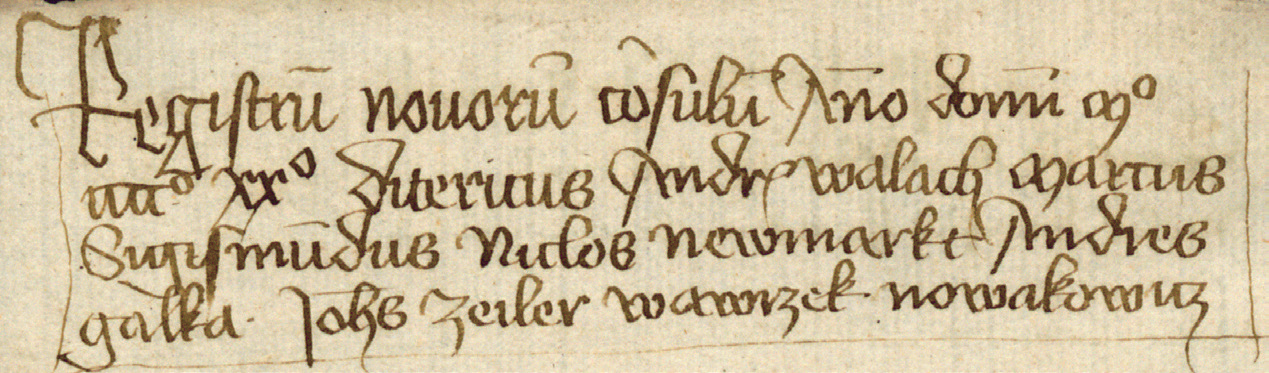 Registrū novorū cōsulū Anno domī Mº
ccccº xxº Ditericus Andrꝭ walach Marcus
Sigismūdus Niclos Newmarkt Andres
galka. Johēs Zeiler wawrzek nowakowicz